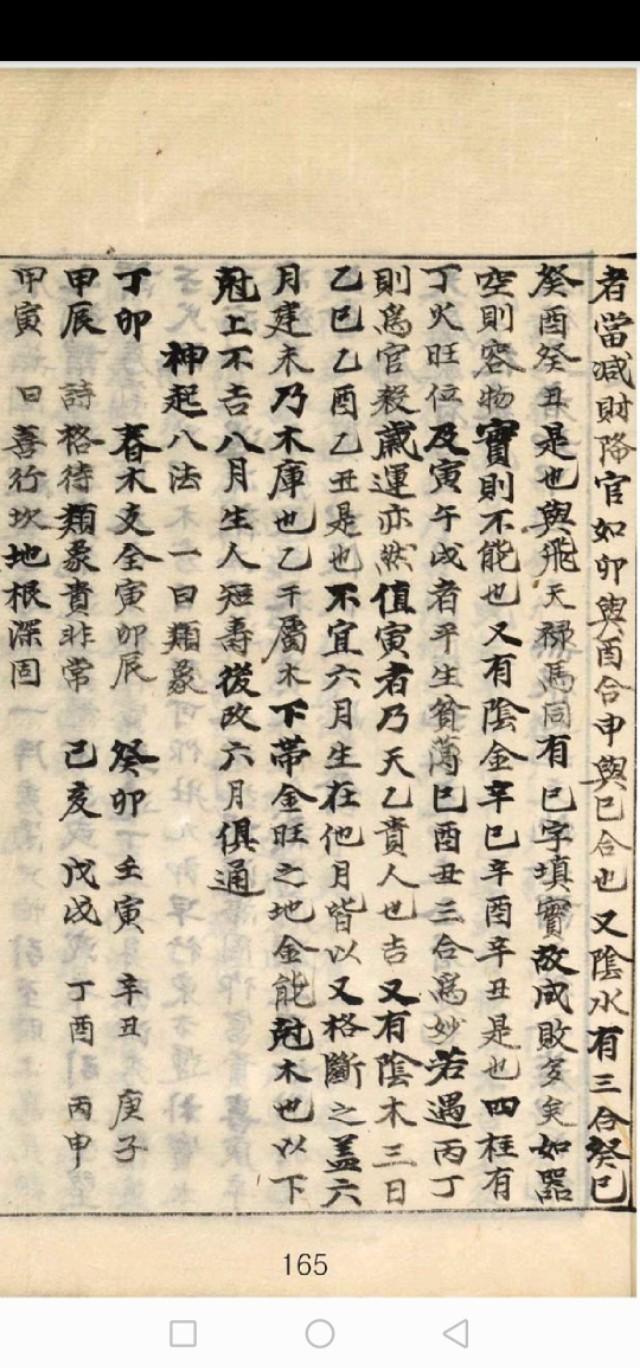 者當减財降官如卯與酉合申與巳合也又陰水有三合癸巳
癸酉癸丑是也與飛天禄馬同有巳字填實故成敗多矣如器
空則容物實則不能也又有陰金辛巳辛酉辛丑是也四柱有
丁火旺位及寅午戌者平生貧薄巳酉丑三合為妙若遇丙丁
則為官殺歲運亦然值寅者乃天乙貴人也吉又有陰木三日
乙巳乙酉乙丑是也不宜六月生在他月皆以又格斷之盖六
月建未乃木庫也乙干屬木下帶金旺之地金能尅木也以下
尅上不吉八月生人短壽後改六月俱通
神起八法 一曰類象
丁卯 春木支全寅卯辰 癸卯 壬寅 辛丑 庚子
甲辰 詩格待類象貴非常 己亥 戊戌 丁酉 丙申
甲寅 曰善行坎地根深固
165